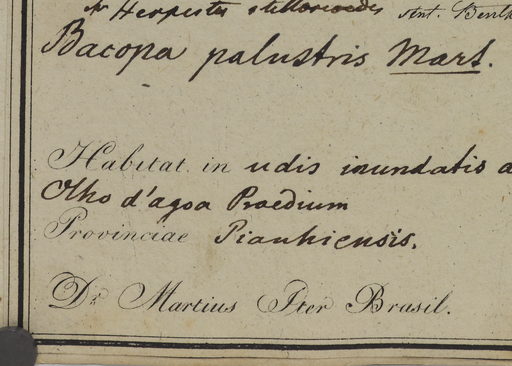 Herpestes stellarioides Benth
Bacopa palustris Mart.
Habitat in udis inundatis a
Olho d'agoa Praedium
Provinciae Piauhiensis.
Dr. Martius Iter Brasil.